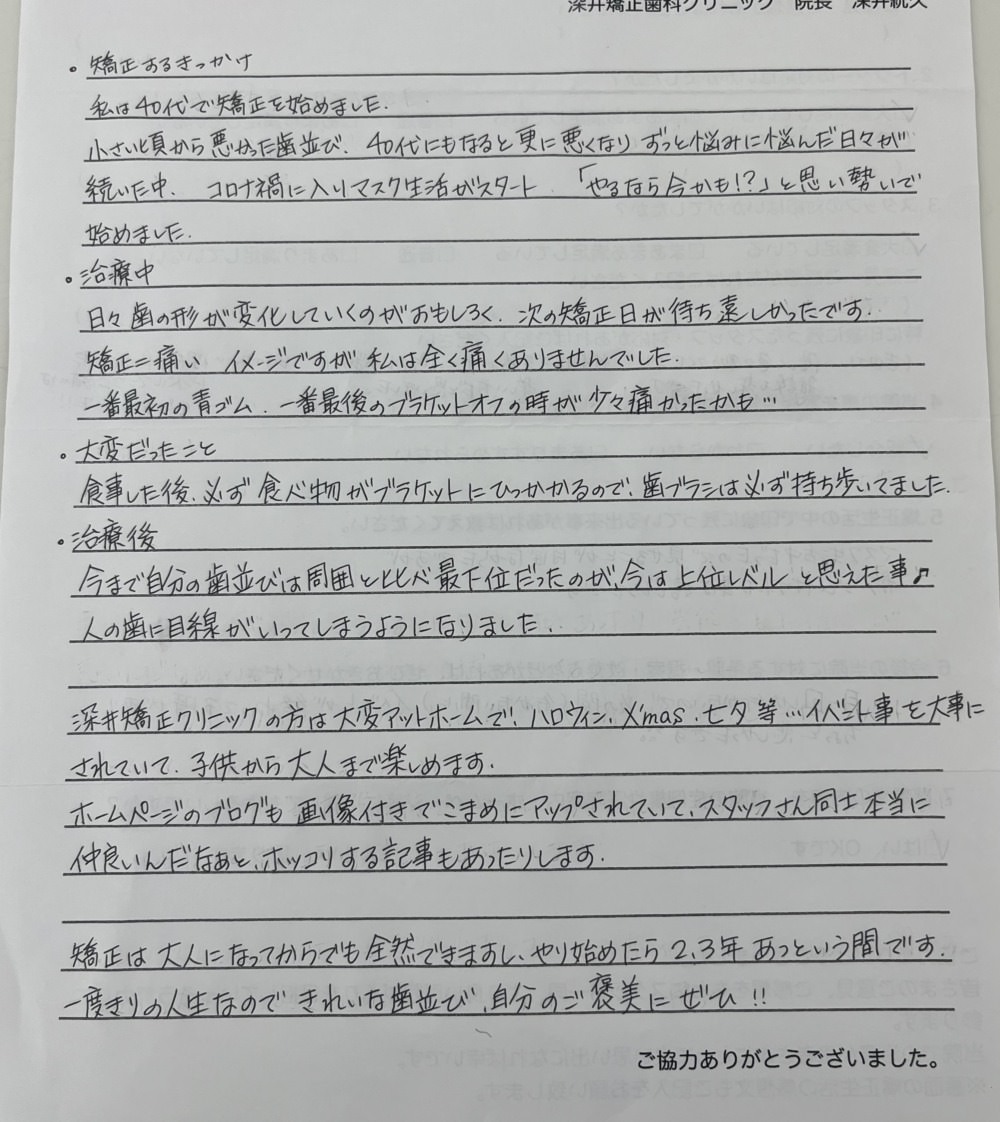 深井矯正歯科クリニック 院長 深井統久
。矯正するきっかけ
私は40代で矯正を始めました.
小さい頃から悪かった歯並び、40代にもなると更に悪くなり ずっと悩みに悩んだ日々が
続いた中、コロナ禍に入りマスク生活がスタート.「やるなら今かも!?」と思い勢いで
始めました.
。治療中
日々歯の形が変化していくのがおもしろく、次の矯正日が待ち遠しかったです.
矯正=痛い イメージですが 私は全く痛くありませんでした.
一番最初の青ゴム、一番最後のブラケットオフの時が少々痛かったかも…
。大変だったこと
食事した後、必ず食べ物がブラケットにひっかかるので、歯ブラシは必ず持ち歩いてました.
。治療後
今まで自分の歯並びは周囲と比べ最下位だったのが、今は上位レベルと思えた事♪
人の歯に目線がいってしまうようになりました.
深井矯正クリニックの方は大変アットホームで、ハロウィン、X'mas、七夕等…イベント事を大事に
されていて、子供から大人まで楽しめます.
ホームページのブログも画像付きでこまめにアップされていて、スタッフさん同士本当に
仲良いんだなぁと、ホッコリする記事もあったりします.
矯正は大人になってからでも全然できますし、やり始めたら2、3年あっという間です.
一度きりの人生なので きれいな歯並び、自分のご褒美に ぜひ!!
ご協力ありがとうございました。